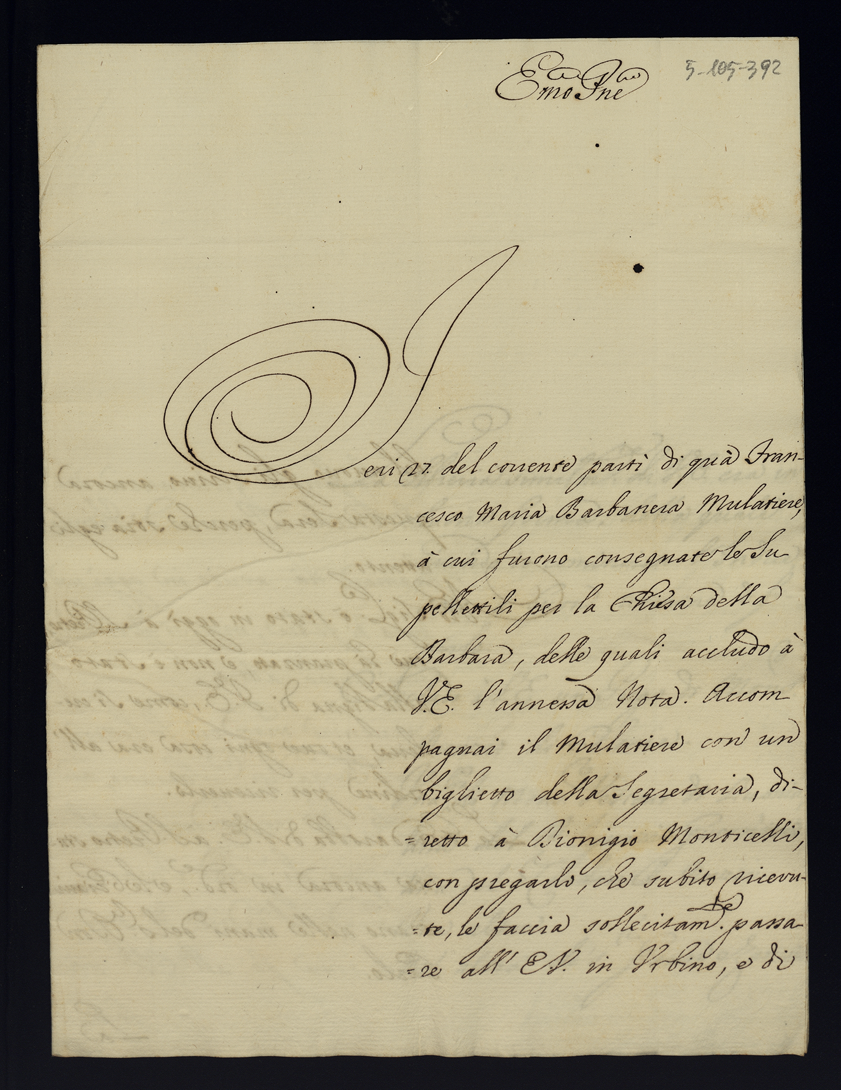 5-105-392
Emo Pne
Ieri 22 del corrente partì di quà Fran-
cesco Maria Barbanera Mulatiere,
à cui furono consegnate le Su
pellettili per la Chiesa della
Barbara, delle quali accludo à
V.E. l'annessa Nota. Accom
pagnai il Mulatiere con un
biglietto della Segretaria, di-
=retto à Dionigio Monticelli,
con pregarlo, che subito ricevu-
=te, le faccia sollecitam.te passa
=re all' EV. in Urbino, e di